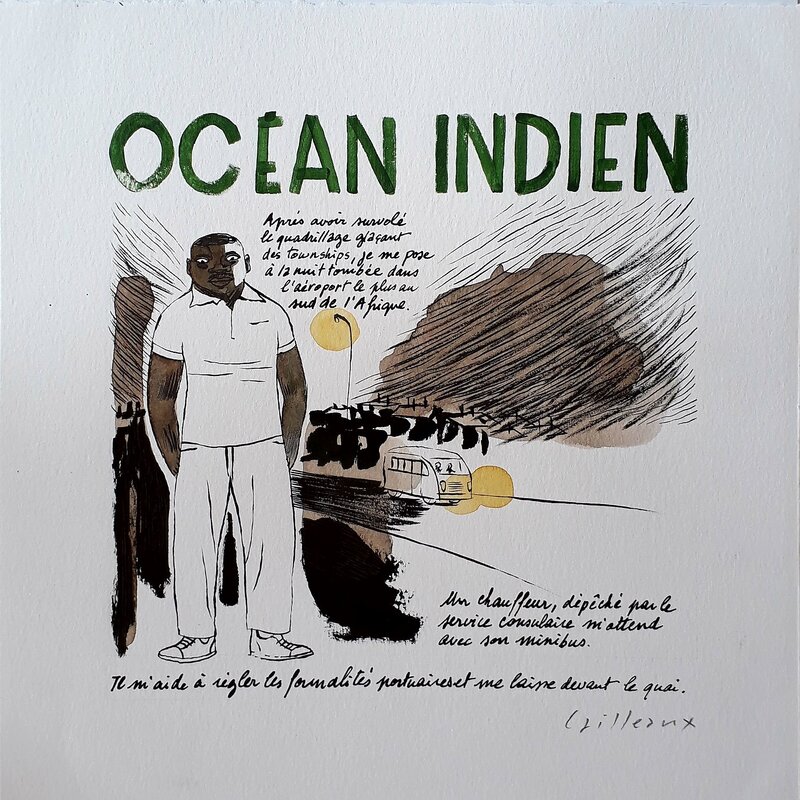 OCÉAN INDIEN
Après avoir survolé
le quadrillage glaçant
des townships, je me pose
à la nuit tombée dans
l'aéroport le plus au
sud de l'Afrique.
Un chauffeur, dépêché par le
service consulaire m'attend
avec son minibus.
Il m'aide à régler les formalités portuaires et me laisse devant le quai.
Cailleaux